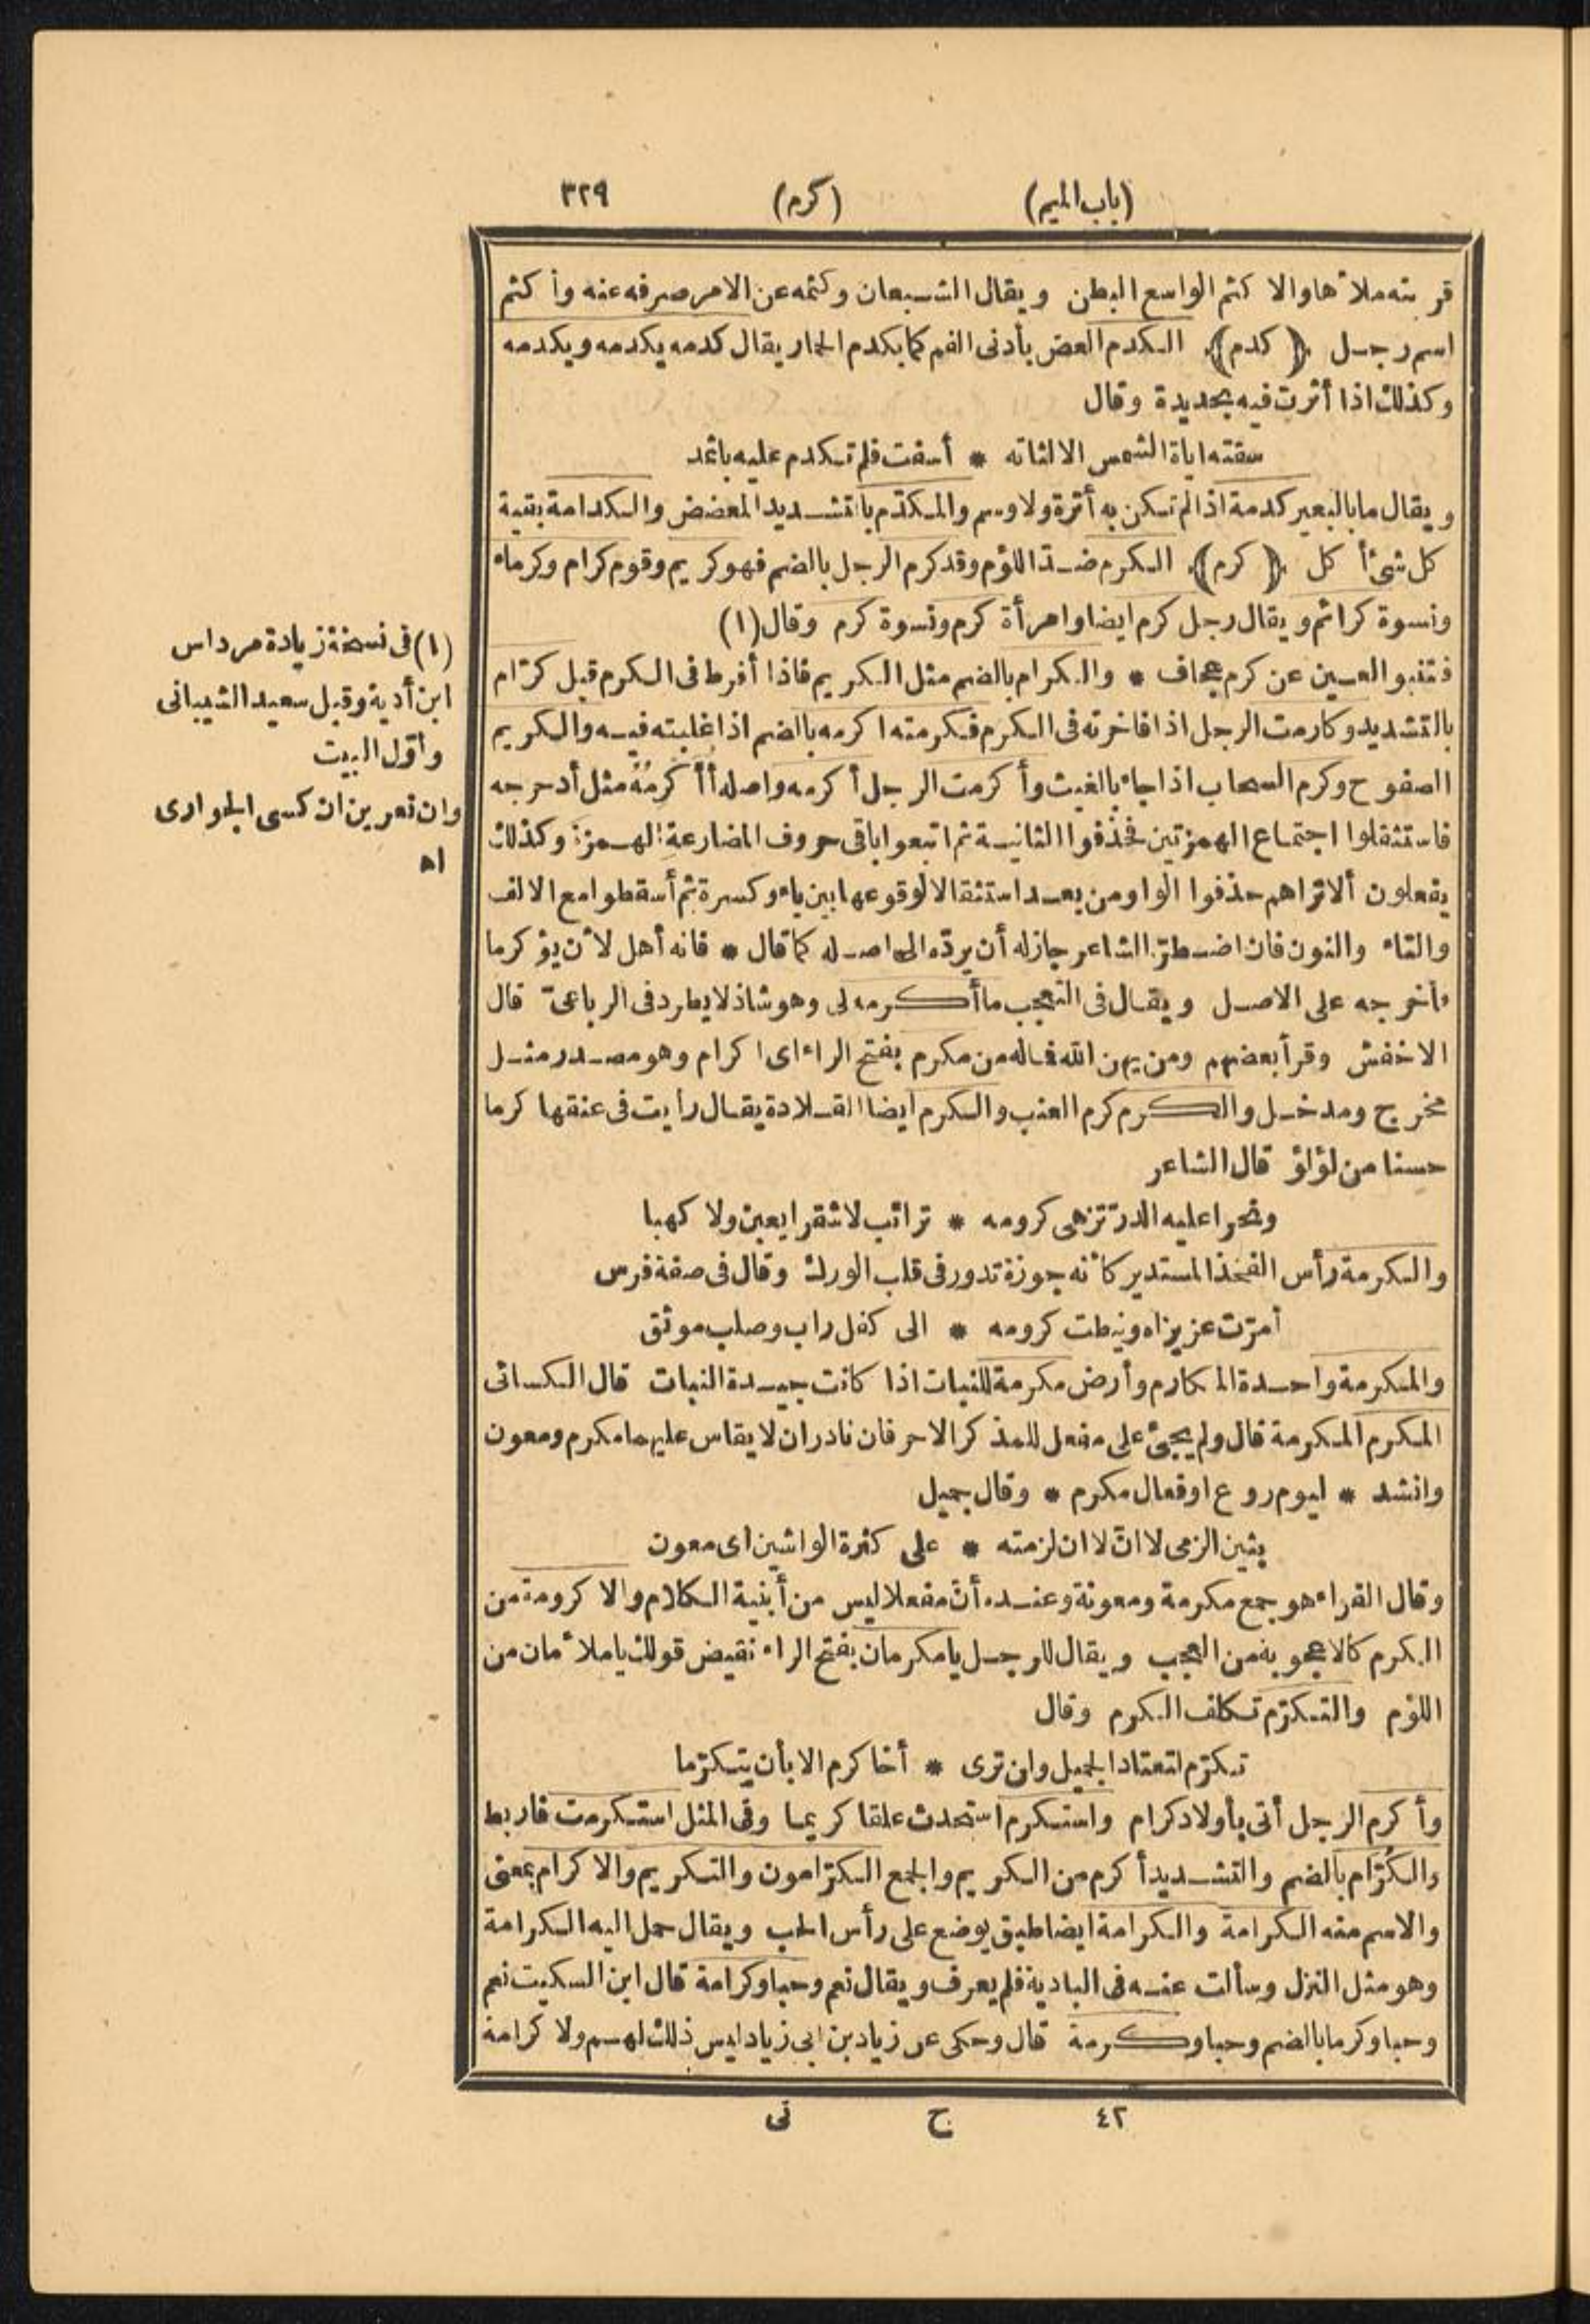 (باب الميم) (كرم) ٣٢٩
قربته ملأها والا كثم الواسع البطن ويقال الشبعان وكثمه عن الامر صرفه عنه وأكثم
اسم رجل ﴿كدم﴾ الكدم العض بأدنى الفم كما يكدم الحمار يقال كدمه يكدمه ويكدمه
وكذلك اذا أثرت فيه بحديدة وقال
سقته اياة الشمس الا لثاته * أسفت فلم تكدم عليه باثمد
ويقال ما بالبعير كدمة اذا لم تكن به أثرة ولا وسم والمكدّم بالتشديد المعضض والكدامة بقية
كل شئ أكل ﴿كرم﴾ الكرم ضدّ اللؤم وقد كرم الرجل بالضم فهو كريم وقوم كرام وكرماء
ونسوة كرائم ويقال رجل كرم ايضا وامرأة كرم ونسوة كرم وقال (١)
فتنبو العين عن كرم عجاف * والكرام بالضم مثل الكريم فاذا أفرط فى الكرم قيل كرّام
بالتشديد وكارمت الرجل اذا فاخرته فى الكرم فكرمته اكرمه بالضم اذا غلبته فيه والكريم
الصفوح وكرم السحاب اذا جاء بالغيث وأكرمت الرجل أكرمه واصله أأكرمه مثل أدحرجه
فاستثقلوا اجتماع الهمزتين فحذفوا الثانية ثم اتبعوا باقى حروف المضارعة الهمزة وكذلك
يفعلون ألا تراهم حذفوا الواو من يعد استثقالا لوقوعها بين ياء وكسرة ثم أسقطوا مع الالف
والتاء والنون فان اضطرّ الشاعر جاز له أن يردّه الى اصله كما قال * فانه أهل لأن يؤكرما
فأخرجه على الاصل ويقال فى التعجب ما أكرمه لى وهو شاذ لا يطرد فى الرباعىّ قال
الاخفش وقرأ بعضهم ومن يهن الله فماله من مكرم بفتح الراء اى اكرام وهو مصدر مثل
مخرج ومدخل والكرم كرم العنب والكرم ايضا القلادة يقال رأيت فى عنقها كرما
حسنا من لؤلؤ قال الشاعر
ونحرا عليه الدرّ تزهى كرومه * ترائب لا شقرا يعبن ولا كهبا
والكرمة رأس الفخذ المستدير كأنه جوزة تدور فى قلب الورك وقال فى صفة فرس
أمرّت عزيزاه ونيطت كرومه * الى كفل راب وصلب موثق
والمكرمة واحدة المكارم وأرض مكرمة للنبات اذا كانت جيدة النبات قال الكسائى
المكرم المكرمة قال ولم يجئ على مفعل للمذكر الا حرفان نادران لا يقاس عليهما مكرم ومعون
وانشد * ليوم روع او فعال مكرم * وقال جميل
بثين الزمى لا انّ لا ان لزمته * على كثرة الواشين اى معون
وقال الفراء هو جمع مكرمة ومعونة وعنده أنّ مفعلا ليس من أبنية الكلام والاكرومة من
الكرم كالاعجوبة من العجب ويقال للرجل يا مكرمان بفتح الراء نقيض قولك يا ملأمان من
اللؤم والتكرّم تكلف الكرم وقال
تكرّم لتعتاد الجميل وان ترى * أخا كرم الا بأن يتكرّما
وأكرم الرجل أتى بأولاد كرام واستكرم استحدث علقا كريما وفى المثل استكرمت فاربط
والكُرّام بالضم والتشديد أكرم من الكريم والجمع الكرّامون والتكريم والاكرام بمعنى
والاسم منه الكرامة والكرامة ايضا طبق يوضع على رأس الحب ويقال حمل اليه الكرامة
وهو مثل النزل وسألت عنه فى البادية فلم يعرف ويقال نعم وحبا وكرامة قال ابن السكيت نعم
وحبا وكرما بالضم وحبا وكرمة قال وحكى عن زياد بن ابى زياد ليس ذلك لهم ولا كرامة
٤٢ ح نى
(١) فى نسخة زيادة مرداس
ابن أدية وقيل سعيد الشيبانى
وأوّل البيت
وان تعرين ان كسى الجوارى
اه